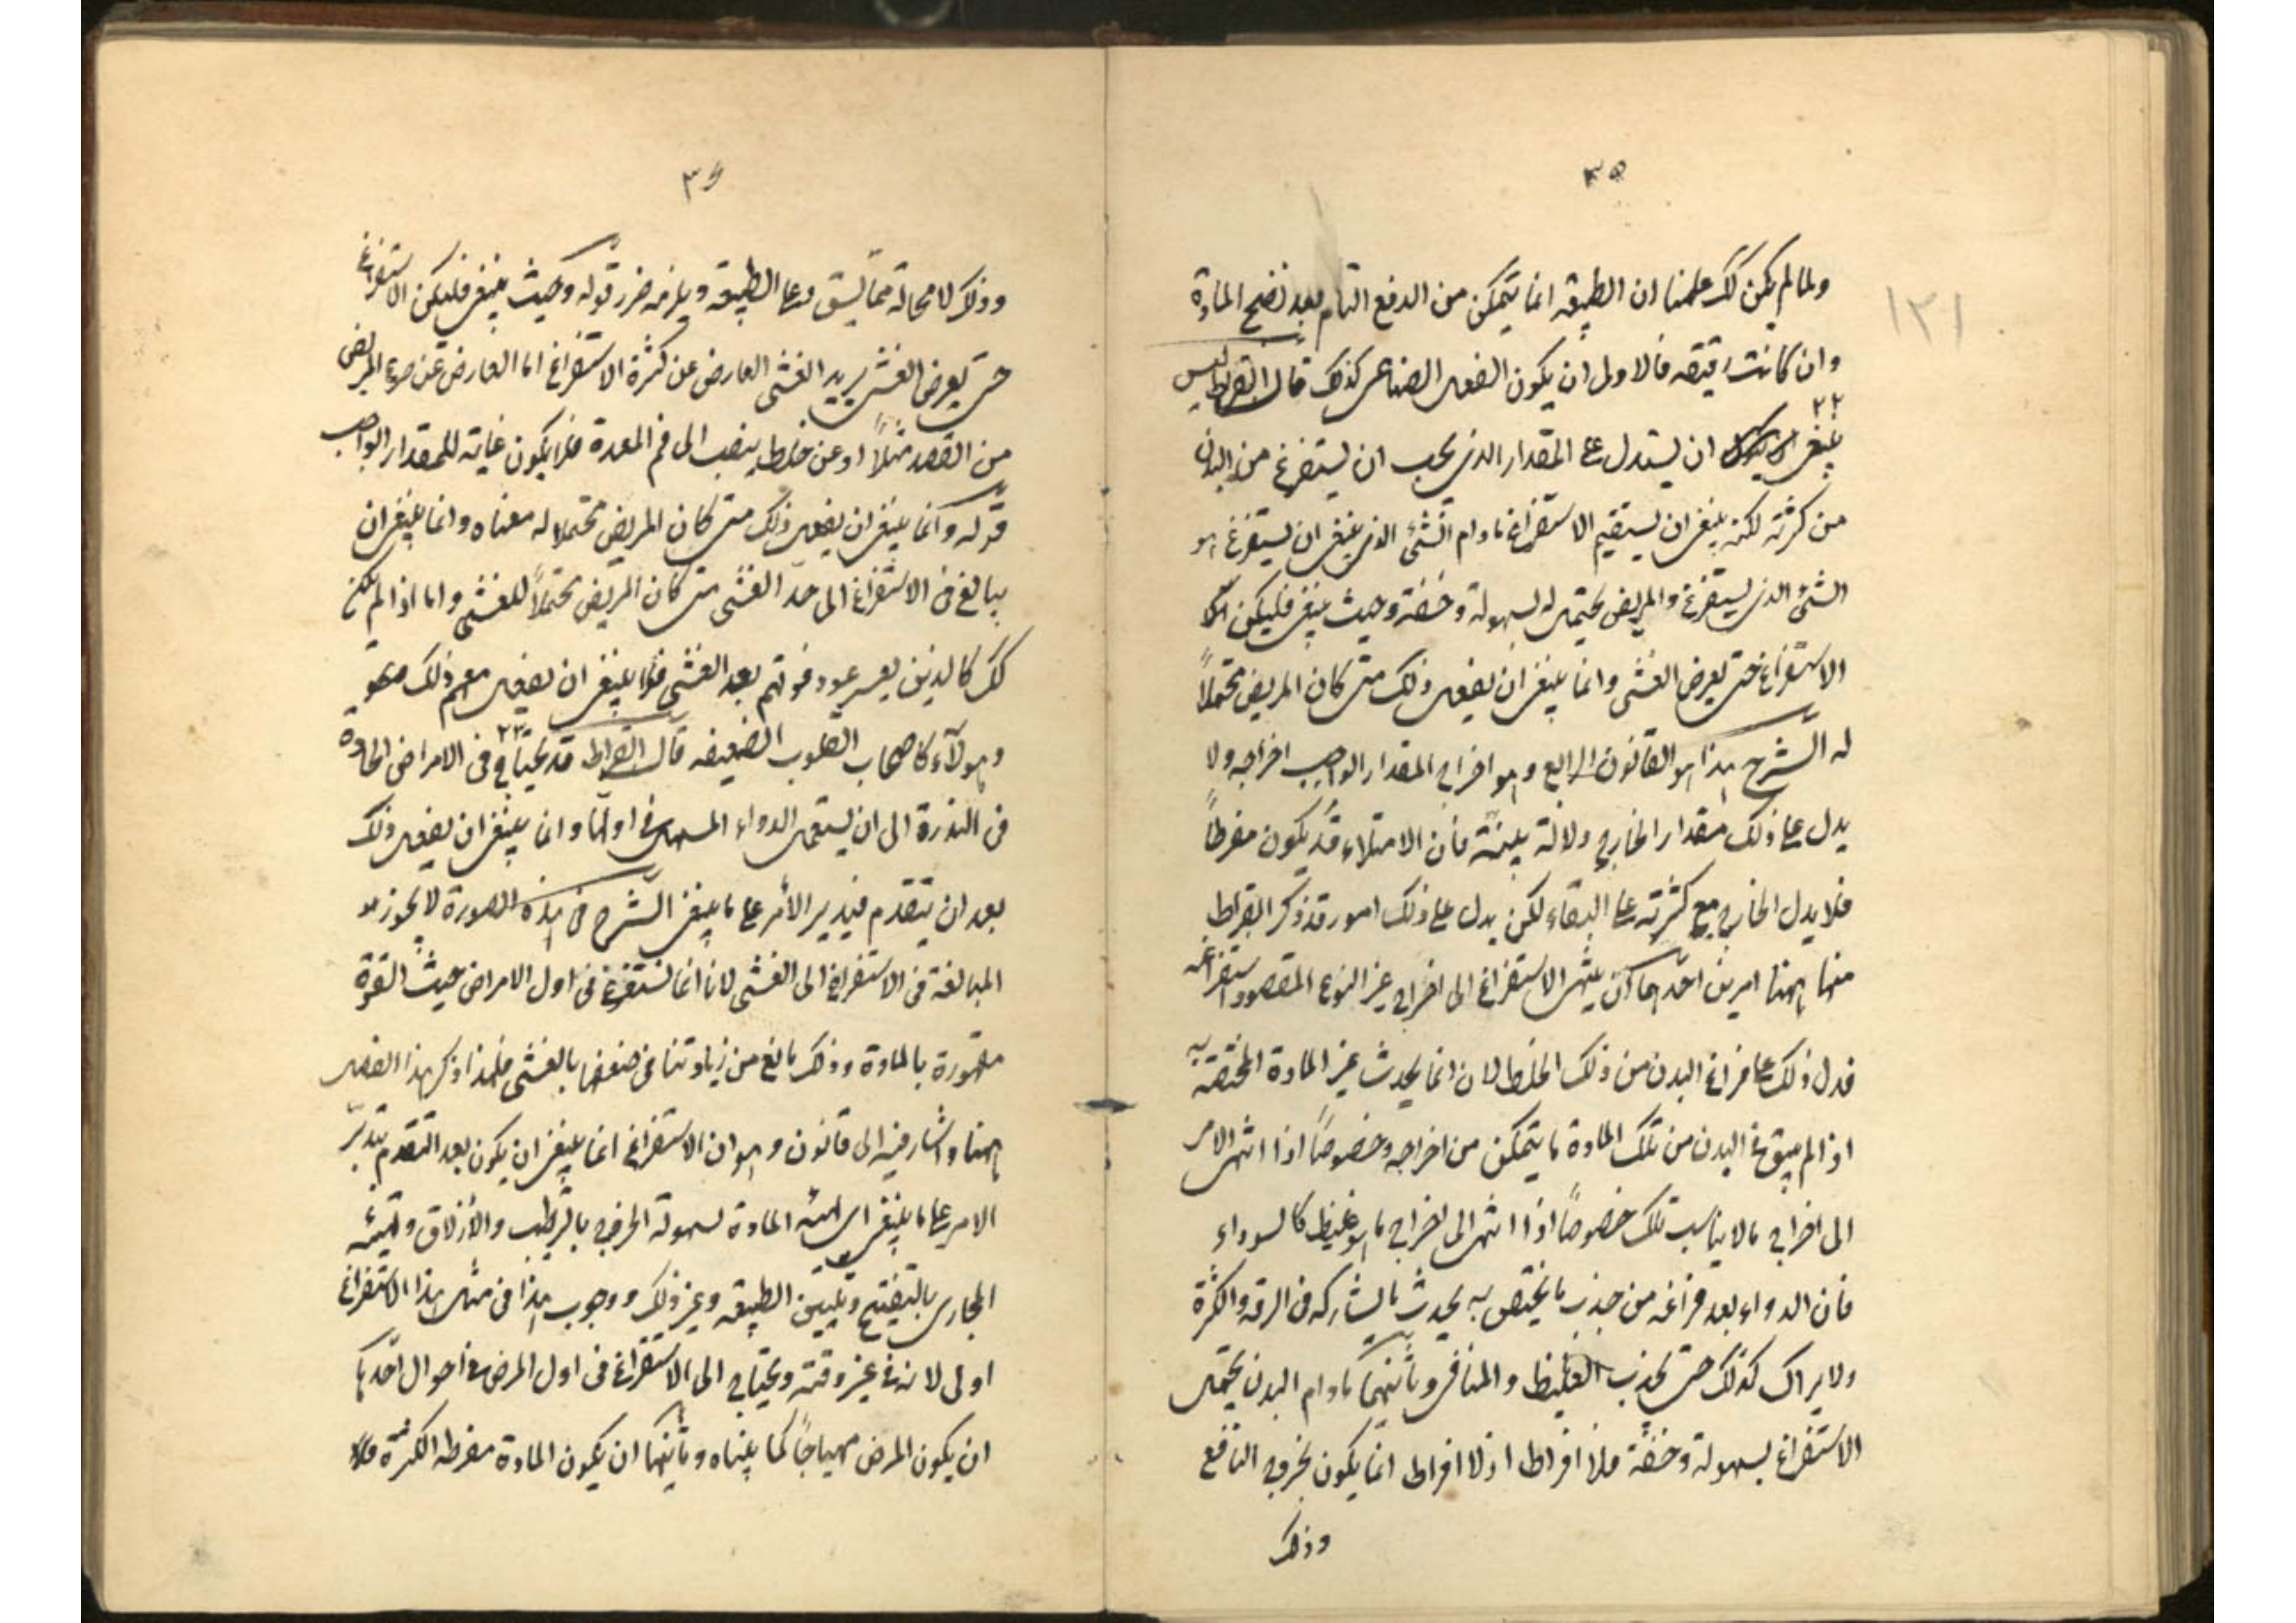 ٣٥
١٢١
ولما لم يكن كك علمنا ان الطبيعه انما يتمكن من الدفع التام بعد نضج المادة
وان كانت رقيقه فالاولى ان يكون الفعل الصناعى كذلك قال ابقراط ليس
٢٢
ينبغى ان يستدل على المقدار الذى يجب ان يستفرغ من البدن
من كثرته لكنه ينبغى ان يستقيم الاستفراغ مادام الشئ الذى ينبغى ان يستفرغ هو
الشئ الذى يستفرغ والمريض يحتمله بسهولة وخفة وحيث ينبغى فليكن
الاستفراغ حتى يعرض الغشى وانما ينبغى ان يفعل ذلك متى كان المريض محتملاً
له الشرح هذا هو القانون الرابع وهو اخراج المقدار الواجب اخراجه ولا
يدل على ذلك مقدار الخارج دلالة بينة فان الامتلاء قد يكون مفرطاً
فلا يدل الخارج مع كثرته على النقاء لكن يدل على ذلك امور قد ذكر ابقراط
منها ههنا امرين احدهما ان ينتهى الاستفراغ الى اخراج غير النوع المقصود استفراغه
فدل ذلك على فراغ البدن من ذلك الخلط لان انما يحدث غير المادة المختصة به
اذا لم يبق فى البدن من تلك المادة ما يتمكن من اخراجه وخصوصاً اذا انتهى الامر
الى اخراج ما لا يناسب تلك خصوصاً اذا انتهى الى اخراج ما هو غليظ كالسوداء
فان الدواء بعد فراغه من جذب ما يختص به يحدث ما يشاركه فى الرقه والكثرة
ولا يزال كذلك حتى يجذب الغليظ والمنافى وثانيهما مادام البدن يحتمل
الاستفراغ بسهولة وخفة فلا افراط اذ لا افراط انما يكون بخروج النافع
وذلك
٣٦
وذلك لا محالة مما يشق على الطبيعه ويلزمه ضرر قوله وحيث ينبغى فليكن الاستفراغ
حتى يعرض الغشى يريد الغشى العارض عن كثرة الاستفراغ اما العارض عن المريض
من الفصد مثلاً او عن خلط ينصب الى فم المعدة فلا يكون غاية للمقدار الواجب
قوله وانما ينبغى ان يفعل ذلك متى كان المريض محتملا له معناه وانما ينبغى ان
يبالغ فى الاستفراغ الى حد الغشى متى كان المريض محتملاً للغشى واما اذا لم يكن
كك كالذين يعسر عود قوتهم بعد الغشى فلا ينبغى ان يفعل معهم ذلك
وهولآء كاصحاب القلوب الضعيفه قال ابقراط قد يحتاج فى الامراض الحادة
٢٣
فى الندرة الى ان يستعمل الدواء المسهل فى اولها وانما ينبغى ان يفعل ذلك
بعد ان يتقدم فيدبر الأمر على ما ينبغى الشرح فى هذه الصورة لا يجوز
المبالغة فى الاستفراغ الى الغشى لانا انما نستفرغ فى اول الامراض حيث القوة
مقهورة بالمادة وذلك مانع من زيادتنا فى ضعفها بالغشى فلهذا ذكر هذا الفصل
ههنا واشار فيه الى قانون وهو ان الاستفراغ انما ينبغى ان يكون بعد التقدم بتدبير
الامر على ما ينبغى اى تهيئه المادة لسهولة الخروج بالترطيب والأزلاق وتهيئه
المجارى بالتفتيح وتليين الطبيعه وغير ذلك ووجوب هذا فى مثل هذا الاستفراغ
اولى لانه فى غير وقته ويحتاج الى الاستفراغ فى اول المرض فى احوال احدها
ان يكون المرض مهياجاً كما بيناه وثانيهما ان يكون المادة مفرطه الكثرة فلا